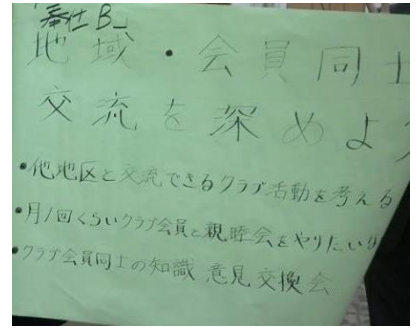 「奉仕B」
地域・会員同士
交流を深めよう
•他地区と交流できるクラブ活動を考える
•月1回くらいクラブ会員と親睦会をやりたいな
•クラブ会員同士の知識 意見交換会